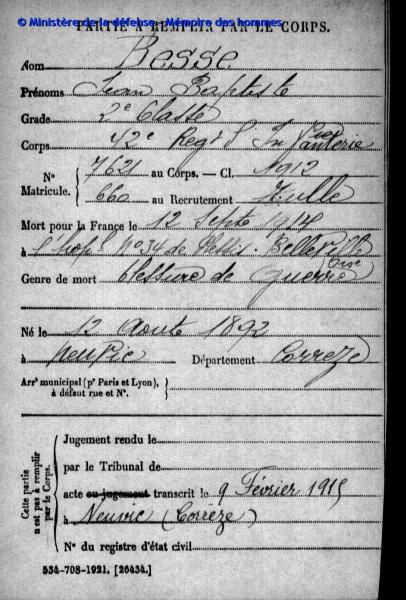 © Ministère de la défense - Mémoire des hommes
PARTIE À REMPLIR PAR LE CORPS.
Nom Besse
Prénoms Jean Baptiste
Grade 2e Classe
Corps 42e Regt d' Infanterie
N° 7621 au Corps. — Cl. 1912
Matricule. 660 au Recrutement Tulle
Mort pour la France le 12 Septe 1914
à l'hopl No 34 de Plessis - Belleville
Oise
Genre de mort blessure de guerre
Né le 12 Aoute 1892
à Neuvic Département Corrèze
Arrt municipal (pr Paris et Lyon),
à défaut rue et N°.
Cette partie
n'est pas à remplir
par le Corps.
Jugement rendu le
par le Tribunal de
acte ou jugement transcrit le 9 Février 1915
à Neuvic (Corrèze)
N° du registre d'état civil
534-708-1921. [26434.]